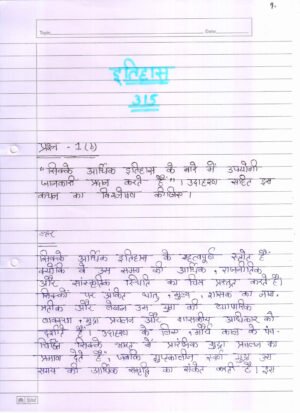 १.
Topic
Date
इतिहास
315
प्रश्न - 1 (b)
"सिक्के आर्थिक इतिहास के बारे में उपयोगी
जानकारी प्रदान करते हैं"। उदाहरण सहित इस
कथन का विश्लेषण कीजिए।
उत्तर
सिक्के आर्थिक इतिहास के महत्वपूर्ण स्रोत हैं
क्योंकि वे उस समय की आर्थिक, राजनीतिक
और सांस्कृतिक स्थिति का चित्र प्रस्तुत करते हैं।
सिक्कों पर अंकित धातु, मूल्य, शासक का नाम,
प्रतीक और लेखन उस युग की व्यापारिक
व्यवस्था, मुद्रा प्रचलन और शासकीय अधिकार को
दर्शाते हैं। उदाहरण के लिए, मौर्य काल के पंच-
चिह्नित सिक्के भारत में प्रारंभिक मुद्रा प्रचलन का
प्रमाण देते हैं, जबकि गुप्तकालीन स्वर्ण मुद्राएं उस
समय की आर्थिक समृद्धि का संकेत करती हैं। इस